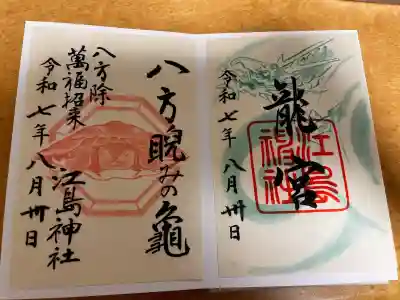 龍宮
江島神社
令和七年八月卅日
八方睨みの亀
八方除
萬福招来
江島神社
令和七年八月卅日